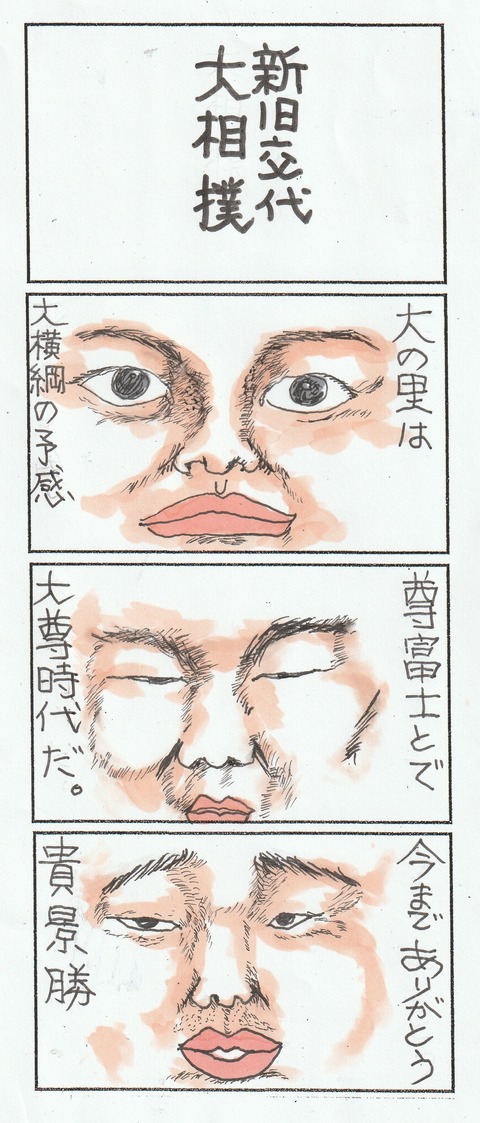 新旧交代
大相撲
大の里は
大横綱の予感
尊富士とで
大尊時代だ。
今までありがとう
貴景勝